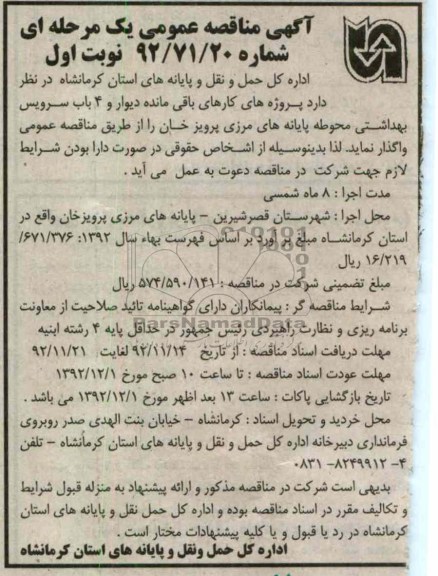 آگهی مناقصه عمومی یک مرحله ای
شماره ۹۲/۷۱/۲۰ نوبت اول
اداره کل حمل و نقل و پایانه های استان کرمانشاه در نظر
دارد پروژه های کارهای باقی مانده دیوار و ۴ باب سرویس
بهداشتی محوطه پایانه های مرزی پرویز خان را از طریق مناقصه عمومی
واگذار نماید. لذا بدینوسیله از اشخاص حقوقی در صورت دارا بودن شرایط
لازم جهت شرکت در مناقصه دعوت به عمل می آید .
مدت اجرا : ۸ ماه شمسی
محل اجرا : شهرستان قصرشیرین - پایانه های مرزی پرویزخان واقع در
استان کرمانشاه مبلغ بر آورد بر اساس فهرست بهاء سال ۱۳۹۲: ۶۷۱/۳۷۶/
۱۶/۲۱۹ ریال
مبلغ تضمینی شرکت در مناقصه : ۵۷۴/۵۹۰/۱۴۱ ریال
شرایط مناقصه گر : پیمانکاران دارای گواهینامه تائید صلاحیت از معاونت
برنامه ریزی و نظارت راهبردی رئیس جمهور در حداقل پایه ۴ رشته ابنیه
مهلت دریافت اسناد مناقصه : از تاریخ ۹۲/۱۱/۱۴ لغایت ۹۲/۱۱/۲۱
مهلت عودت اسناد مناقصه : تا ساعت ۱۰ صبح مورخ ۱۳۹۲/۱۲/۱
تاریخ بازگشایی پاکات : ساعت ۱۳ بعد اظهر مورخ ۱۳۹۲/۱۲/۱ می باشد .
محل خردید و تحویل اسناد : کرمانشاه - خیابان بنت الهدی صدر روبروی
فرمانداری دبیرخانه اداره کل حمل و نقل و پایانه های استان کرمانشاه - تلفن
۴- ۸۲۴۹۹۱۲- ۰۸۳۱
بدیهی است شرکت در مناقصه مذکور و ارائه پیشنهاد به منزله قبول شرایط
و تکالیف مقرر در اسناد مناقصه بوده و اداره کل حمل و نقل و پایانه های استان
کرمانشاه در رد یا قبول و یا کلیه پیشنهادات مختار است .
اداره کل حمل ونقل و پایانه های استان کرمانشاه